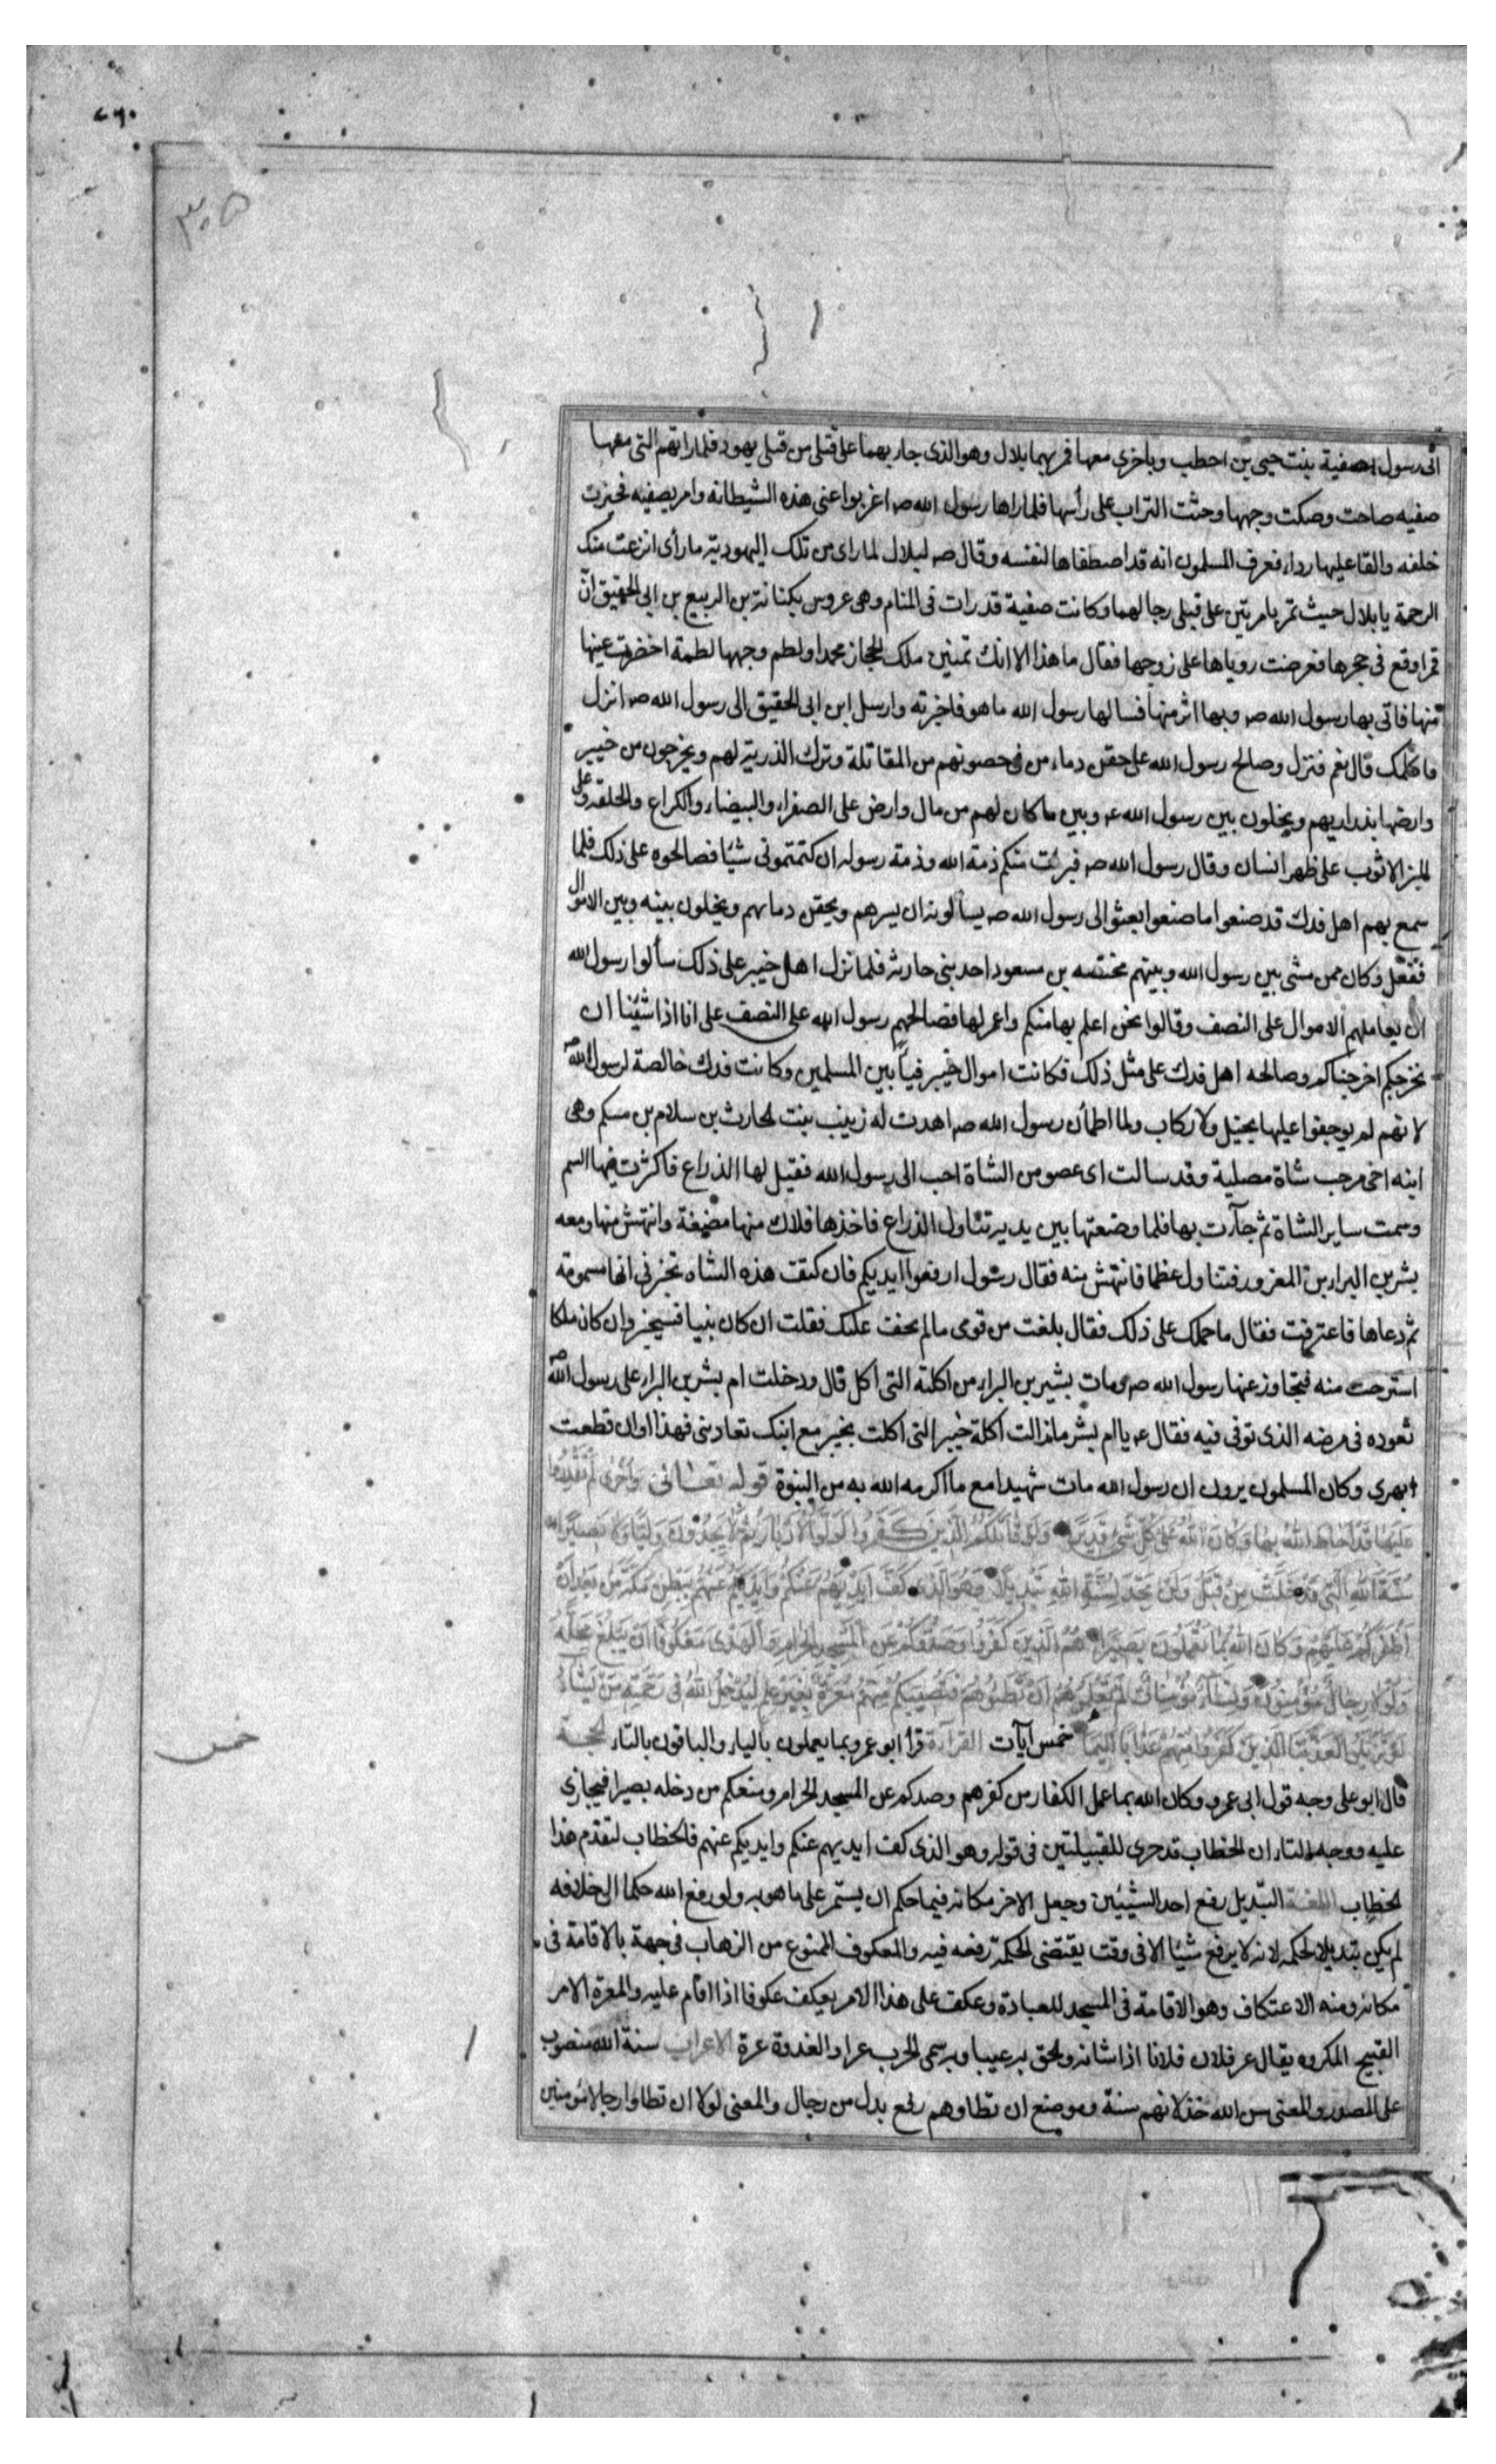 ٣٠٥
الى رسول الله صفية بنت حيى بن احطب وباخرى معها فمر بهما بلال وهو الذى جاء بهما على قتلى من قتلى يهود فلما راتهم التى معها
صفيه صاحت وصكت وجهها وحثت التراب على رأسها فلما راها رسول الله صـ اغربوا عنى هذه الشيطانة وامر بصفيه فحيزت
خلفه والقا عليها رداء فعرف المسلمون انه قد اصطفاها لنفسه وقال صـ لبلال لما راى من تلك اليهودية ما رأى انزعت منك
الرحمة يا بلال حيث تمر بامرتين على قتلى رجالهما وكانت صفية قد رات فى المنام وهى عروس بكنانة بن الربيع بن ابى الحقيق انّ
قمرا وقع فى حجرها فعرضت روياها على زوجها فقال ما هذا الا انك تمنين ملك الحجاز محمدا ولطم وجهها لطمة اخضرت عينها
منها فاتى بها رسول الله صـ وبها اثر منها فسالها رسول الله ما هو فاخبرته وارسل ابن ابى الحقيق الى رسول الله صـ انزل
فاكلمك قال نعم فنزل وصالح رسول الله على حقن دماء من فى حصونهم من المقاتلة وترك الذرية لهم ويخرجون من خيبر
وارضها بذراريهم ويخلون بين رسول الله عـ وبين ما كان لهم من مال وارض على الصفراء والبيضاء والكراع والحلقه وعلى
البز الا ثوب على ظهر انسان وقال رسول الله صـ فبرئت منكم ذمة الله وذمة رسوله ان كتمتمونى شيئا فصالحوه على ذلك فلما
سمع بهم اهل فدك قد صنعوا ما صنعوا بعثوا الى رسول الله صـ يسألونه ان يسرهم ويحقن دماءهم ويخلون بينه وبين الاموال
ففعل وكان ممن مشى بين رسول الله وبينهم بن مسعود احد بنى حارثه فلما نزل اهل خيبر على ذلك سألوا رسول الله
ان يعاملهم الاموال على النصف وقالوا نحن اعلم بها منكم واعمر لها فصالحهم رسول الله على النصف على انا اذا شئنا ان
نخرجكم اخرجناكم وصالحه اهل فدك على مثل ذلك فكانت اموال خيبر فيأ بين المسلمين وكانت فدك خالصة لرسول الله صـ
لانهم لم يوجفوا عليها بخيل ولا ركاب ولما اطمأن رسول الله صـ اهدت له زينب بنت الحارث بن سلام بن مسكم وهى
ابنه اخى مرحب شاة مصلية وقد سالت اى عضو من الشاة احب الى رسول الله فقيل لها الذراع فاكثرت فيها السم
وسمت ساير الشاة ثم جآءت بها فلما وضعتها بين يديه تناول الذراع فاخذها فلاك منها مضغة وانتهش منها ومعه
بشر بن البراء بن المعرور فتناول عظما فانتهش منه فقال رسول ارفعوا ايديكم فان كتف هذه الشاه تخبرنى انها مسمومة
ثم دعاها فاعترفت فقال ما حملك على ذلك فقال بلغت من قومى ما لم يخف عليك فقلت ان كان نبيا فسيخبر وان كان ملكا
استرحت منه فتجاوز عنها رسول الله صـ ومات بشير بن البراء من اكلته التى اكل قال ودخلت ام بشر بن البراء على رسول الله صـ
تعوده فى مرضه الذى توفى فيه فقال عـ يا ام بشر ما زالت اكلة خيبر التى اكلت بخيبر مع ابنك تعادنى فهذا اوان قطعت
ابهرى وكان المسلمون يرون ان رسول الله مات شهيدا مع ما اكرمه الله به من النبوة قوله تعالى وَاُخْرى لَمْ تَقْدِرُوا
عَلَيْهَا قَدْ اَحَاطَ اللهُ بِهَا وَكَانَ اللهُ عَلى كُلِّ شَىْءٍ قَدِيرًا وَلَوْ قَاتَلَكُمُ الَّذِينَ كَفَرُوا لَوَلَّوُا الْاَدْبَارَ ثُمَّ لَا يَجِدُونَ وَلِيًّا وَلَا نَصِيرًا
سُنَّةَ اللهِ الَّتِى قَدْ خَلَتْ مِنْ قَبْلُ وَلَنْ تَجِدَ لِسُنَّةِ اللهِ تَبْدِيلًا وَهُوَ الَّذِى كَفَّ اَيْدِيَهُمْ عَنْكُمْ وَاَيْدِيَكُمْ عَنْهُمْ بِبَطْنِ مَكَّةَ مِنْ بَعْدِ اَنْ
اَظْفَرَكُمْ عَلَيْهِمْ وَكَانَ اللهُ بِمَا تَعْمَلُونَ بَصِيرًا هُمُ الَّذِينَ كَفَرُوا وَصَدُّوكُمْ عَنِ الْمَسْجِدِ الْحَرَامِ وَالْهَدْىَ مَعْكُوفًا اَنْ يَبْلُغَ مَحِلَّهُ
وَلَوْلَا رِجَالٌ مُؤْمِنُونَ وَنِسَاءٌ مُؤْمِنَاتٌ لَمْ تَعْلَمُوهُمْ اَنْ تَطَئُوهُمْ فَتُصِيبَكُمْ مِنْهُمْ مَعَرَّةٌ بِغَيْرِ عِلْمٍ لِيُدْخِلَ اللهُ فِى رَحْمَتِهِ مَنْ يَشَاءُ
لَوْ تَزَيَّلُوا لَعَذَّبْنَا الَّذِينَ كَفَرُوا مِنْهُمْ عَذَابًا اَلِيمًا خمس آيات القرآءة قرأ ابو عمرو بما يعملون بالياء والباقون بالتاء الحجة
خمس
قال ابو على وجه قول ابى عمرو وكان الله بما عمل الكفار من كفرهم وصدكم عن المسجد الحرام ومنعكم من دخله بصيرا فيجازى
عليه ووجه التاء ان الخطاب قد جرى للقبيلتين فى قوله وهو الذى كف ايديهم عنكم وايديكم عنهم فالخطاب لتقدم هذا
الخطاب اللغة التبديل رفع احد الشيئين وجعل الاخر مكانه فيما حكم ان يستمر على ما هو به ولو رفع الله حكما الى خلافه
لم يكن تبديلا لحكمه لانه لا يرفع شيئا الا فى وقت يقتضى الحكمة رفعه فيه والمعكوف الممنوع من الذهاب فى جهة بالاقامة فى
مكانه ومنه الاعتكاف وهو الاقامة فى المسجد للعبادة وعكف على هذا الامر يعكف عكوفا اذا اقام عليه والمعرة الامر
القبيح المكروه يقال عر فلان فلانا اذا شانه ولحق به عيبا وبه سمى الجرب عرا والعذرة عرة الاعراب سنة الله منصوب
على المصدر والمعنى سن الله خذلانهم سنة وموضع ان تطاوهم رفع بدل من رجال والمعنى لولا ان تطاوا رجالا مومنين